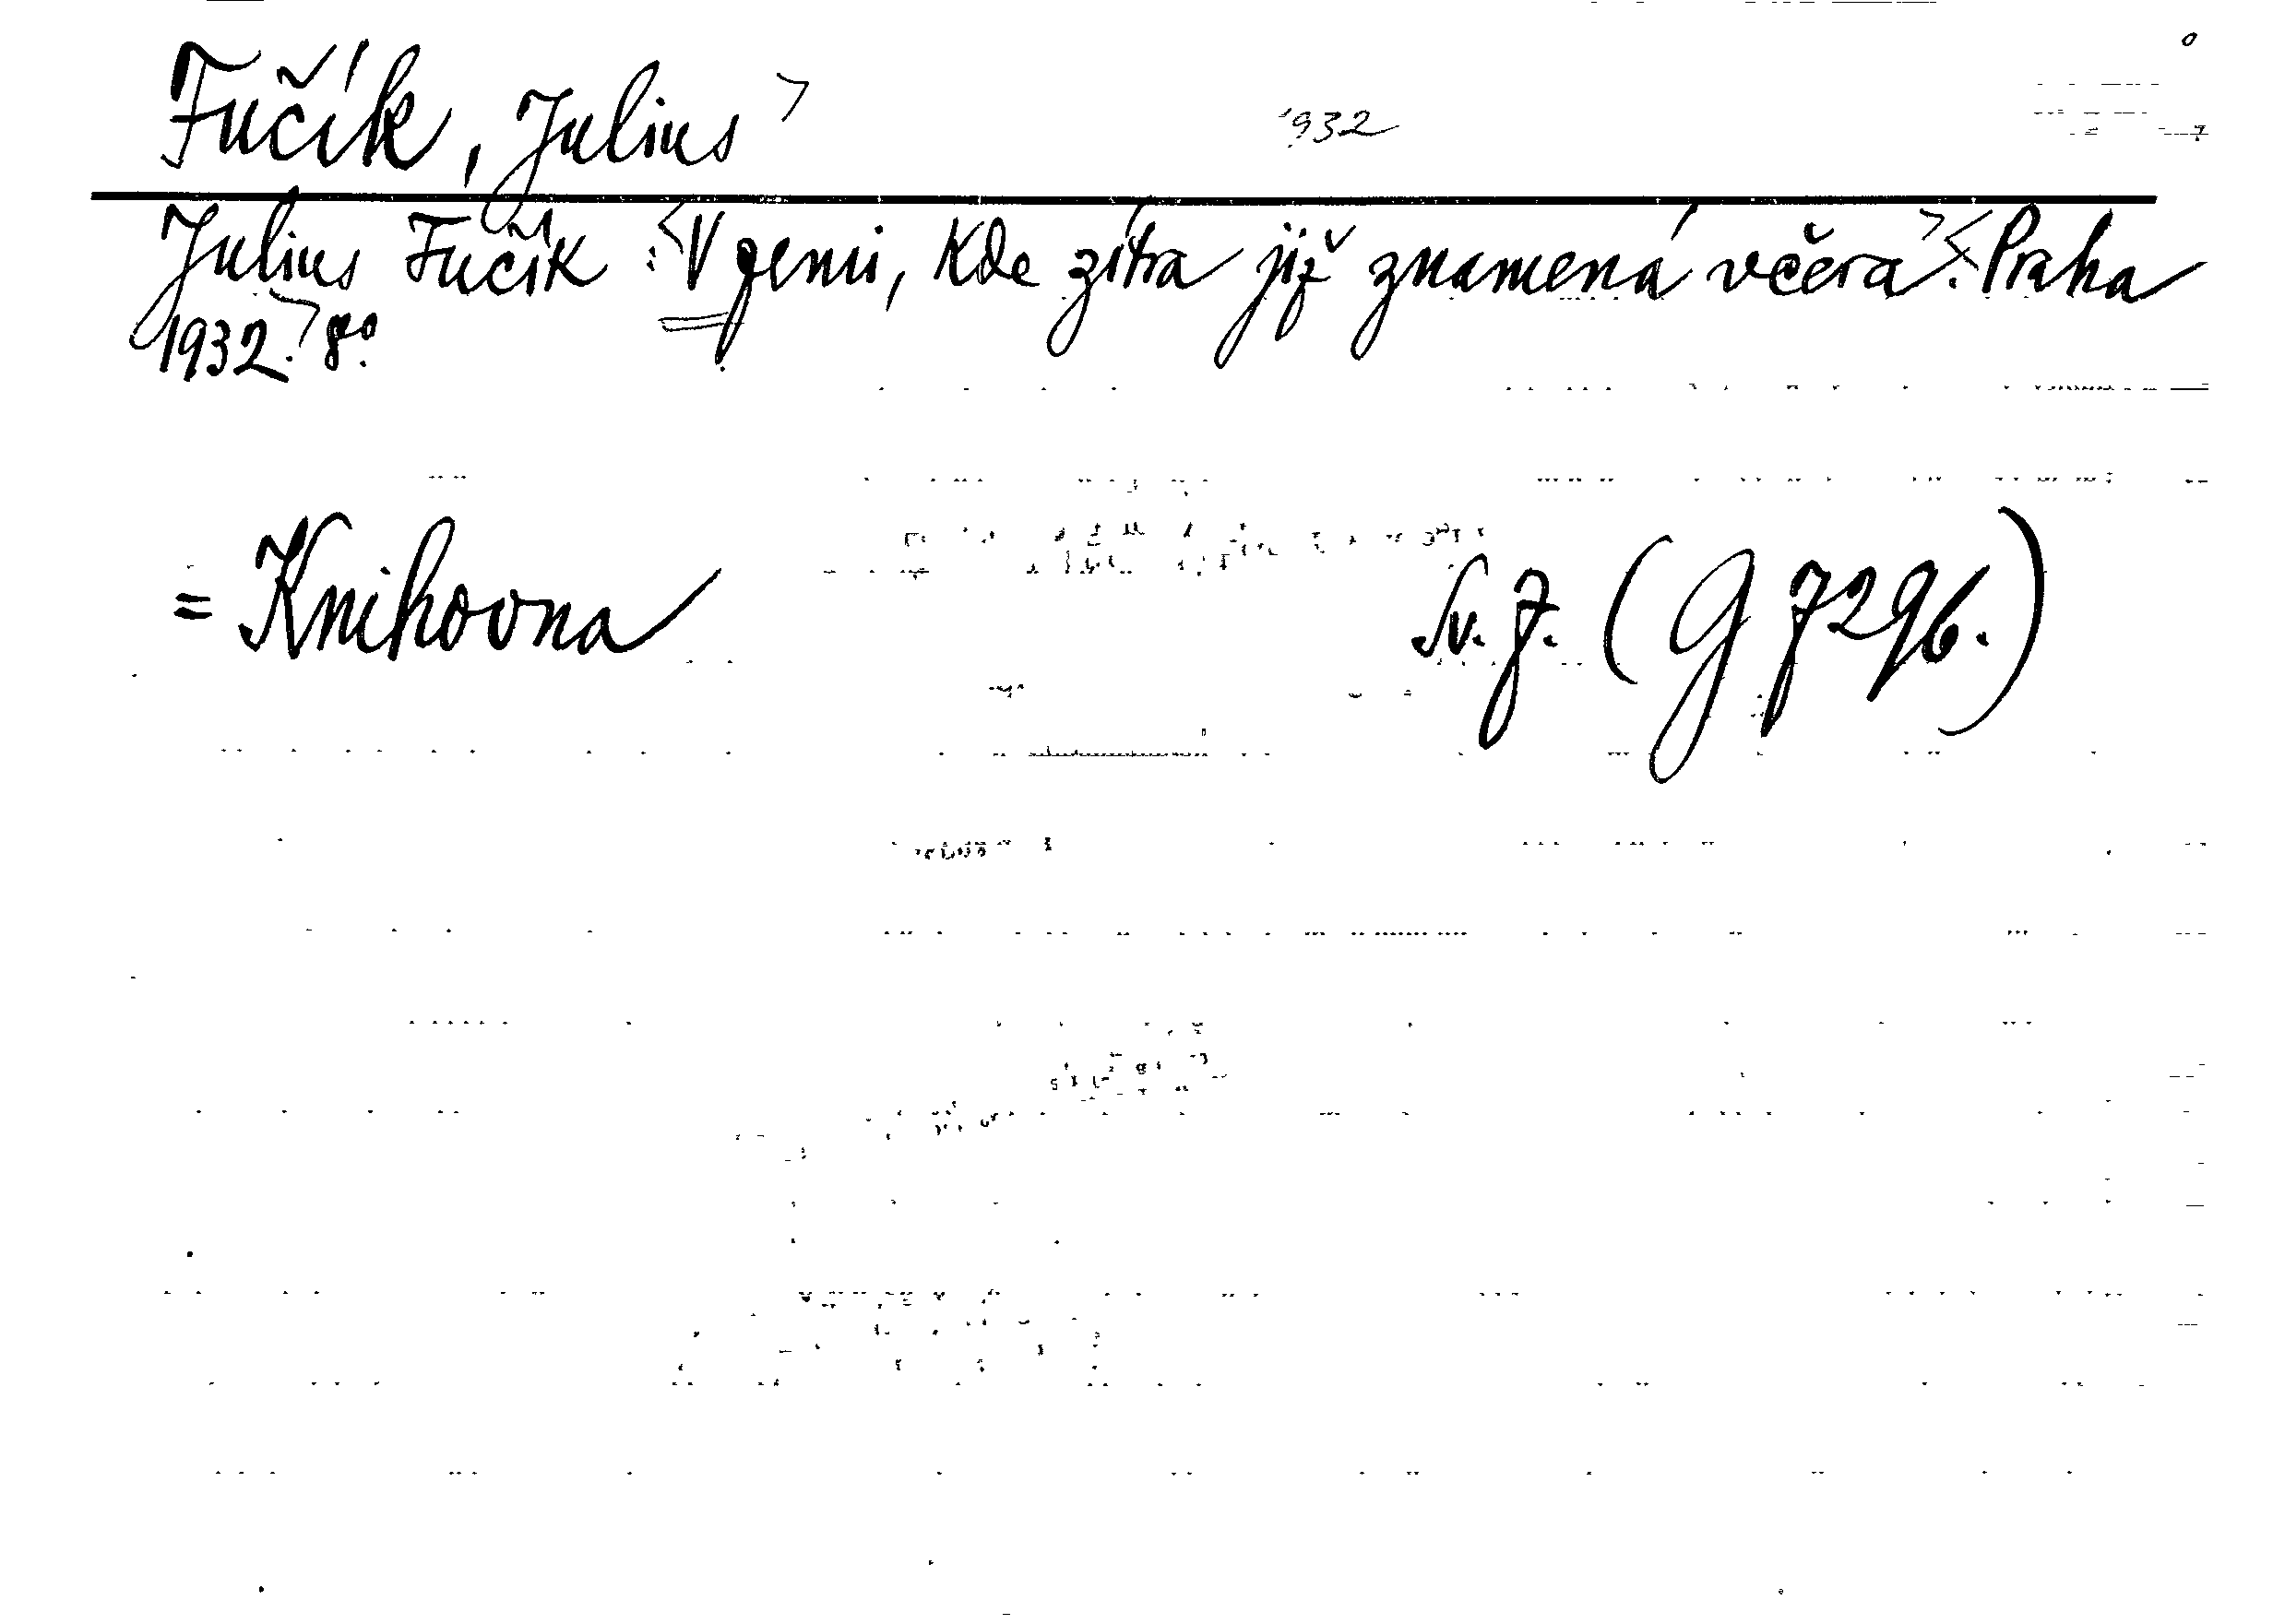 Fučík, Julius 1932
Julius Fučík: V zemi, kde zítra již znamená včera. Praha
1932. 8°.
= Knihovna Sv. 7. (G 7296.)